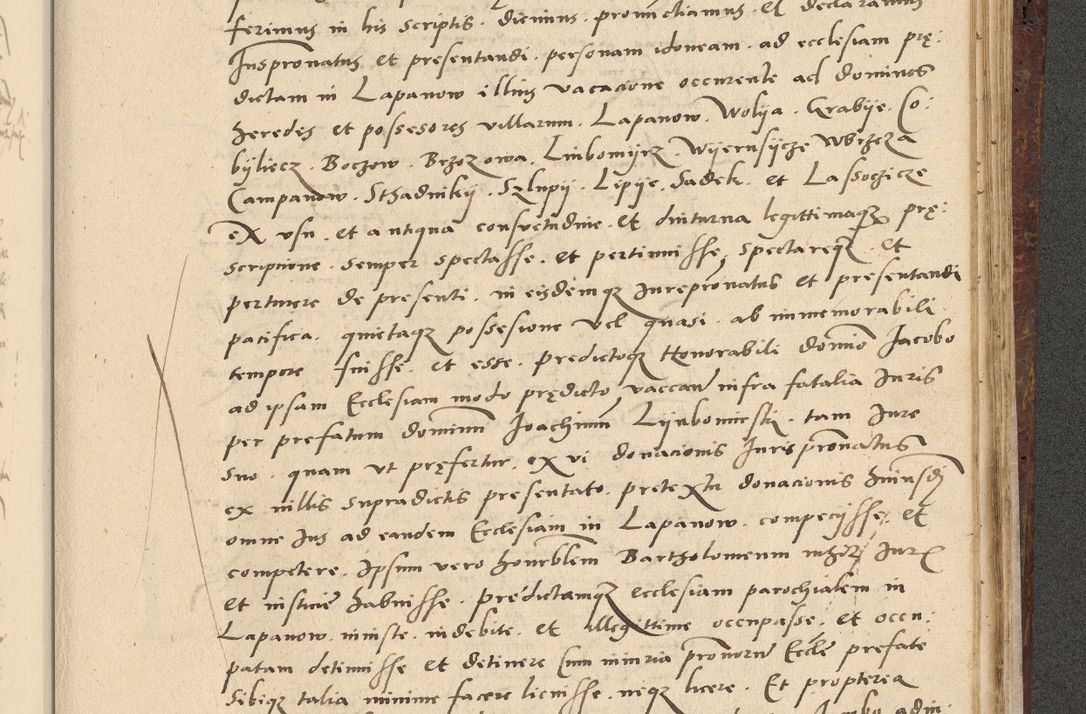 ferimus in his scriptis. dicimus. pronunctiamus et declaramus
Juspronatus et presentandi. personam idoneam. ad ecclesiam prę:
dictam in Lapanow illius vacacione occurente ad dominos
heredes et possesores villarum. Lapanow. Woliya. Grabiye. Co:
byliecz. Boczow. Brzozowa. Linbomÿrz. Wÿernsÿcze Wbrzeza
Campanow. Sthadnikÿ. Szlupÿ. Lipÿe. Sadek. et Lassoczicze
ex vsu. et antiqua consvetudine. et diuturna legittimaqȝ prę:
scriptione. semper spectasse. et pertinuisse, spectareqȝ. et
pertinere de presenti. in eisdemqȝ Jurepronatus et presentandi
pacifica. quietaqȝ possesione vel quasi. ab inmemorabili
tempore fuisse. et esse. predictoqȝ Honorabili domino Jacobo
ad ipsam Ecclesiam modo prędicto, vaccan infra fatalia Juris
per prefatum dominum Joachimum Lÿnbomirski. tam Jure
suo. quam vt pręfertur. ex vi donacionis Jurispronatus
ex villis supradictis presentato. pretextu donacionis huiusdj
omne Jus ad eandem Ecclesiam in Lapanow. competÿsse, et
competere. Ipsum vero honrblem Bartholomeum Jure
et insticie habuisse. predictamqȝ ecclesiam parochialem in
Lapanow. iniuste. indebite. et illegittime occupasse. et occu:
patam detinuisse et detinere Cum iniuria pronorum Eccle prefate
Sibiqȝ talia minime facere licuisse. neqȝ licere. Et propterea